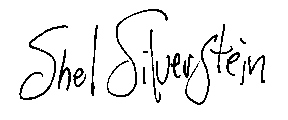 Shel Silverstein